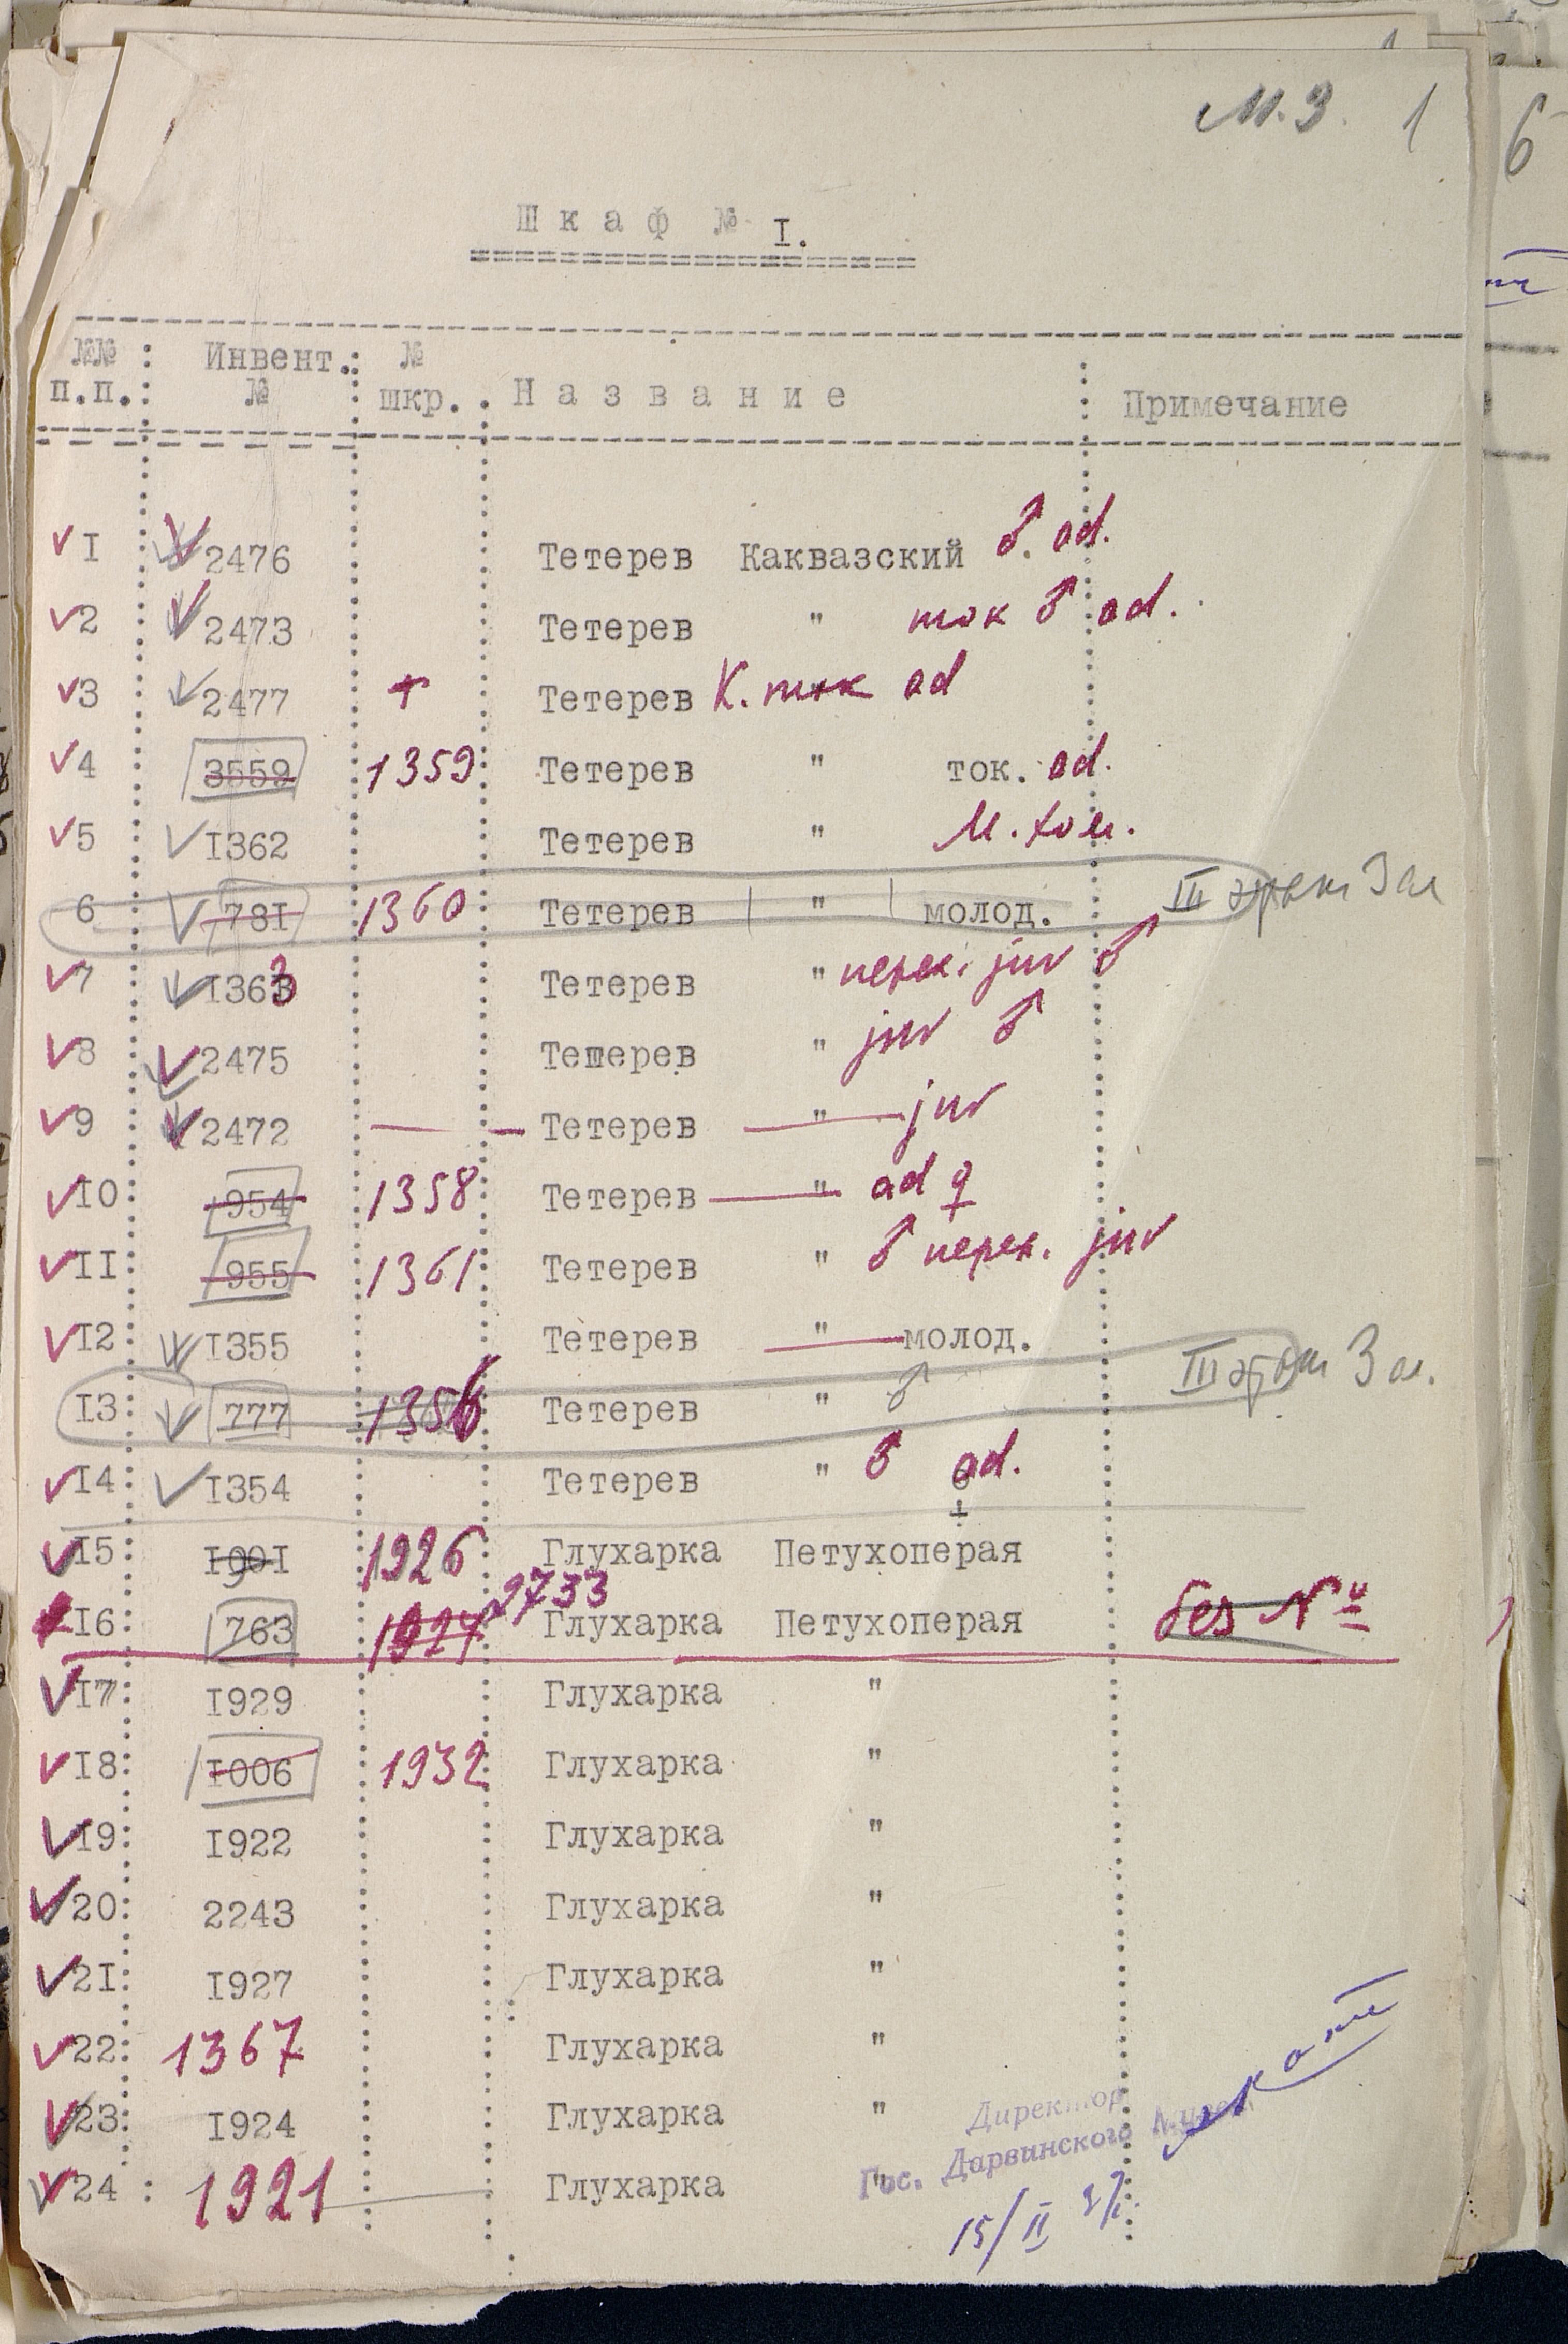 М.З. 1
6
Шкаф № I.
№№ п.п. Инвент. № № шкр. Название Примечание
1 2476 Тетерев Каквазский ♂ ad.
2 2473 Тетерев " ток ♂ ad.
3 2477 + Тетерев К. ток ad
4 3559 1359 Тетерев " ток. ad.
5 I362 Тетерев "
6 78I 1360 Тетерев " молод. III Зал
7 I363 Тетерев " перех. juv ♂
8 2475 Тешерев " juv ♂
9 2472 Тетерев " juv
I0 954 1358 Тетерев " ad ♀
II 955 1361 Тетерев " ♂ перех. juv
I2 I355 Тетерев " молод.
I3 777 1356 Тетерев " ♂ III Зал.
I4 I354 Тетерев " ♂ ad.
I5 I90I 1926 Глухарка Петухоперая
I6 763 1927 2733 Глухарка Петухоперая без №
I7 I929 Глухарка "
I8 I006 1932 Глухарка "
I9 I922 Глухарка "
20 2243 Глухарка "
2I I927 Глухарка "
22 1367 Глухарка "
23 I924 Глухарка "
24 1921 Глухарка "
Директор
Гос. Дарвинского Музея
15/II